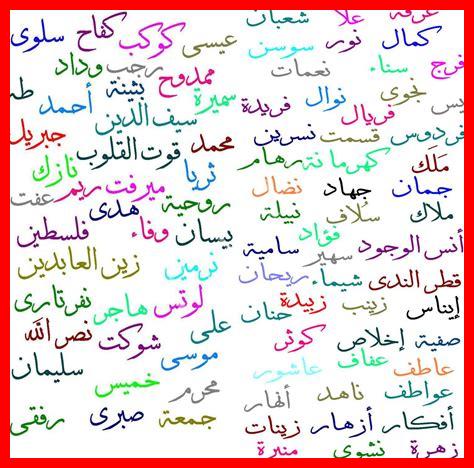 علا شعبان
كمال نور سوسن عيسى كوكب كفاح سلوى
فرج سناء نعمات رجب وداد
نجوى نوال فريدة سميرة ممدوح بثينة أحمد طه
فردوس فريال قسمت نسرين سيف الدين جبريل
ملك كهرمانة رهام محمد قوت القلوب نازك
جمان جهاد نضال ثريا ميرفت ريم عفت
ملاك سلاف نبيلة روحية هدى
أنس الوجود فؤاد سهير سامية بيسان وفاء فلسطين
قطر الندى شيماء ريحان نرمين زين العابدين
إيناس زينب زبيدة حنان لوتس هاجر نفرتارى
صفية إخلاص كوثر على شوكت نصر الله
عاطف عفاف عاشور موسى سليمان
عواطف ناهد أنهار محرم خميس
أفكار أزهار زينات جمعة صبرى رفقى
زهرة نشوى منيرة